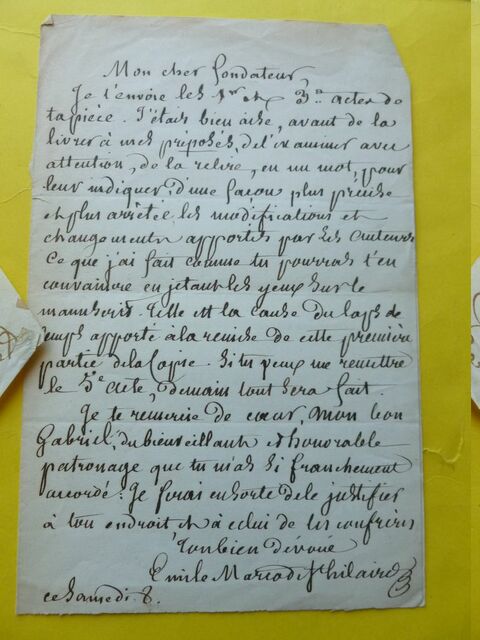 Mon cher fondateur,
Je t'envoie les 1er et 3e actes de
ta pièce. J'étais bien aise, avant de la
livrer à mes préposés, de l'examiner avec
attention, de la relire, en un mot, pour
leur indiquer, d'une façon plus précise
et plus arrêtée les modifications et
changements apportés par les auteurs
Ce que j'ai fait comme tu pourras t'en
convaincre en jetant les yeux sur le
manuscrit. Telle est la cause du laps de
temps apporté à la remise de cette première
partie de la Copie. Si tu veux me remettre
le acte, demain tout sera fait.
Je te remercie de cœur, mon bon
Gabriel, du bienveillant et honorable
patronage que tu m'as si franchement
accordé : Je ferai en sorte de le justifier
à ton endroit et à celui de tes confrères
Ton bien dévoué
Emile Marco de St hilaire
ce Samedi 8.